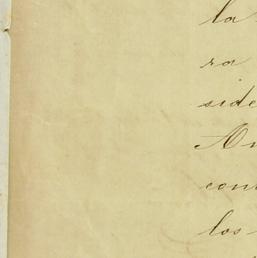 la
ra
side
An
con
los